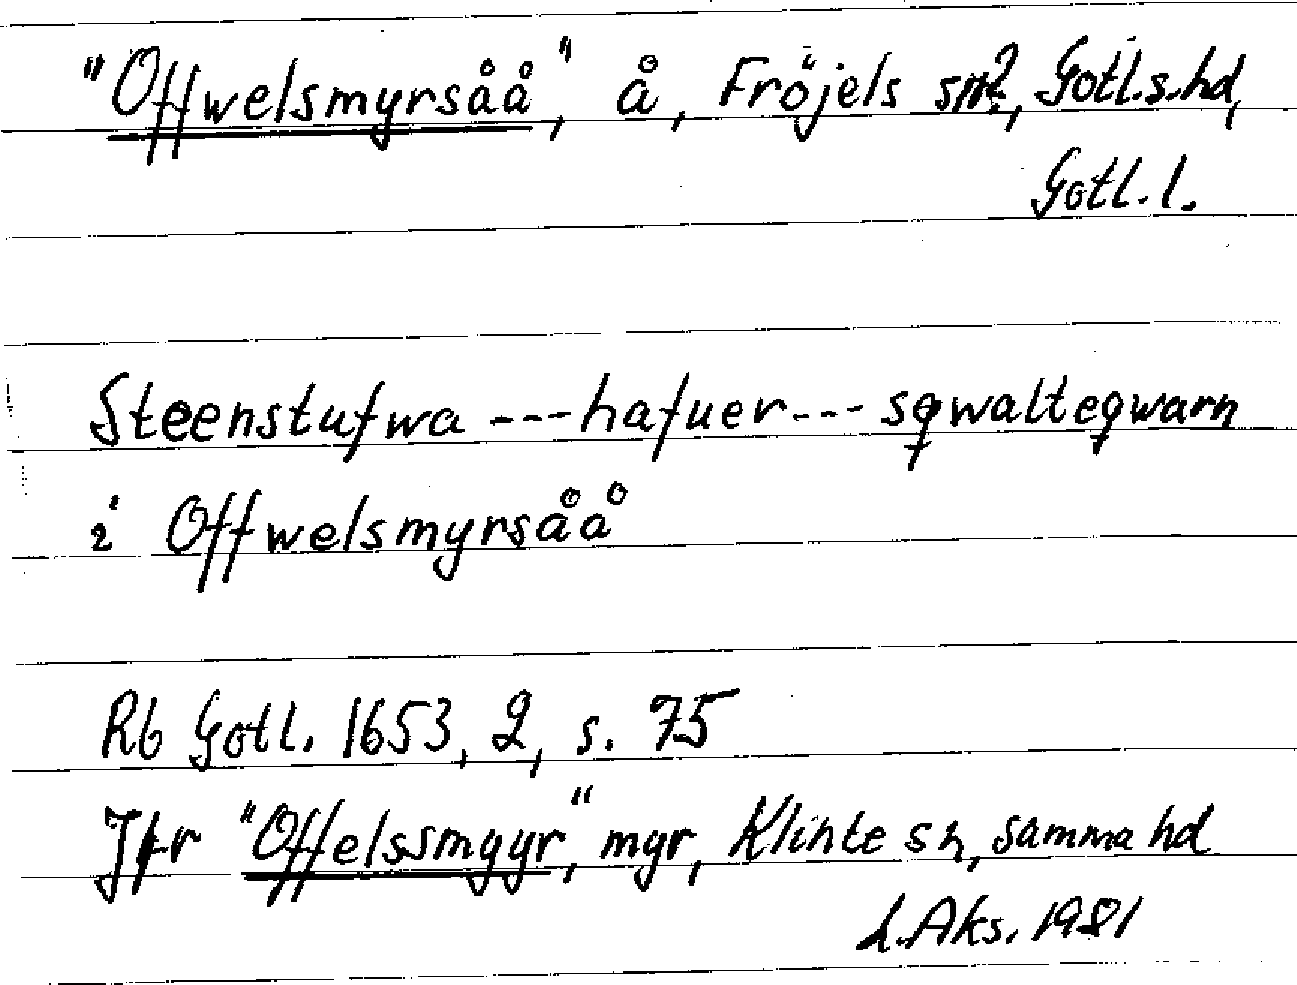 "Offwelsmyrsåå", å, Fröjels sn?, Gotl.s.hd,
Gotl. l.
Steenstufwa ---hafuer--- sqwalteqwarn
i Offwelsmyrsåå
Rb Gotl. 1653, 2, s. 75
Jfr "Offelssmyyr", myr, Klinte sn, samma hd
L.Aks. 1981